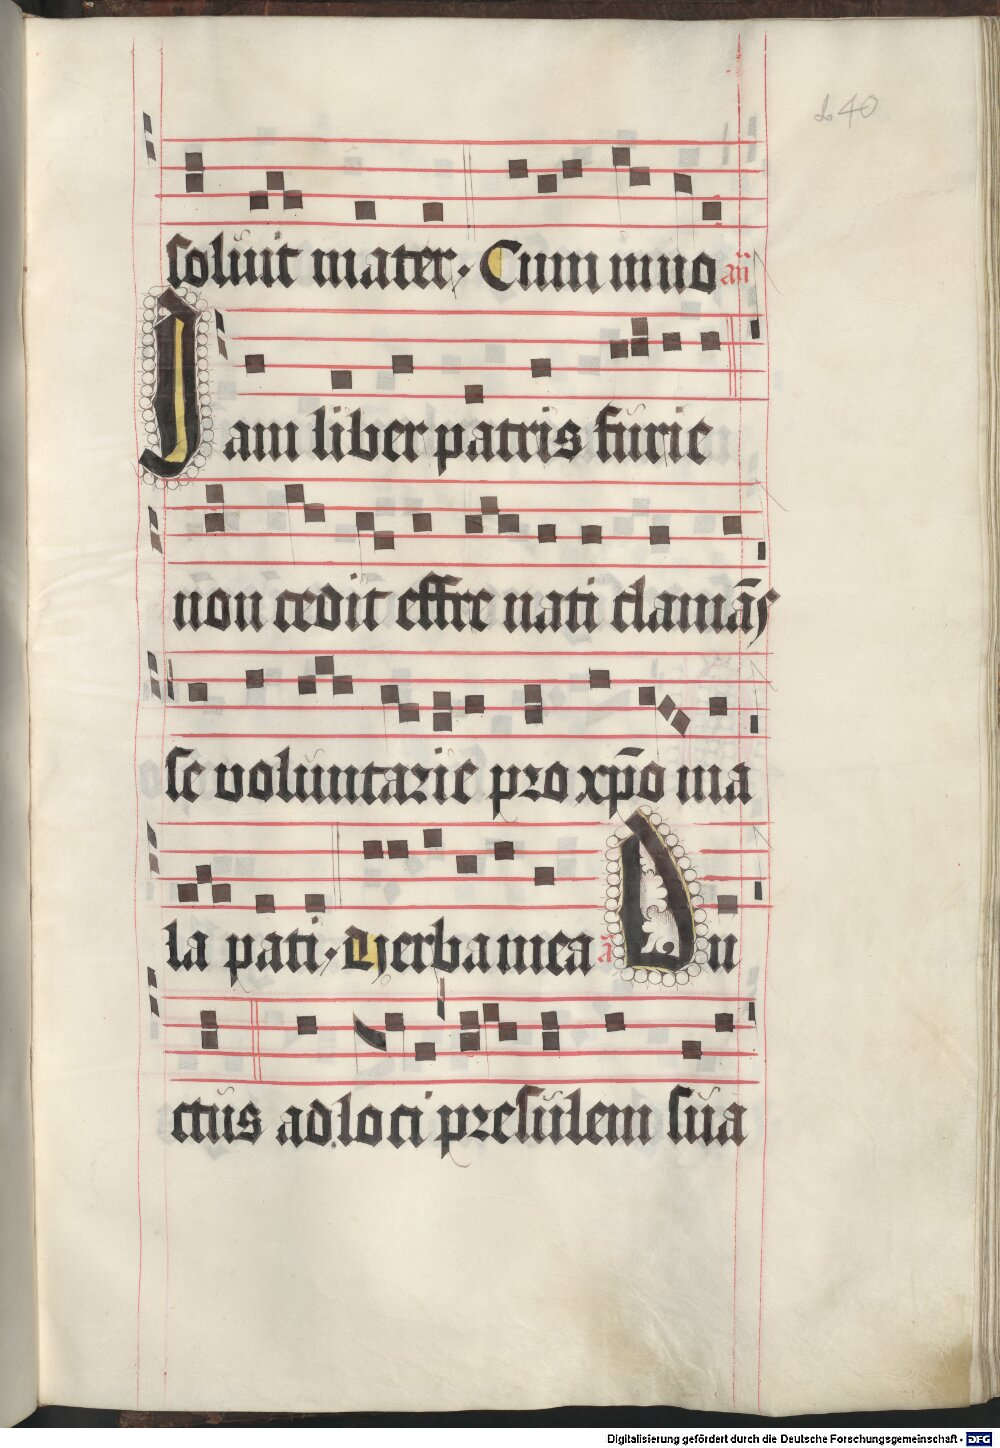 240
soluit mater. Cum inuo an̄
Iam liber patris furie
non cedit effre nati clamās
se voluntarie pro xp̄o ma
la pati. Verba mea a̅ Du
ctus ad loci presulem sua
Digitalisierung gefördert durch die Deutsche Forschungsgemeinschaft - DFG